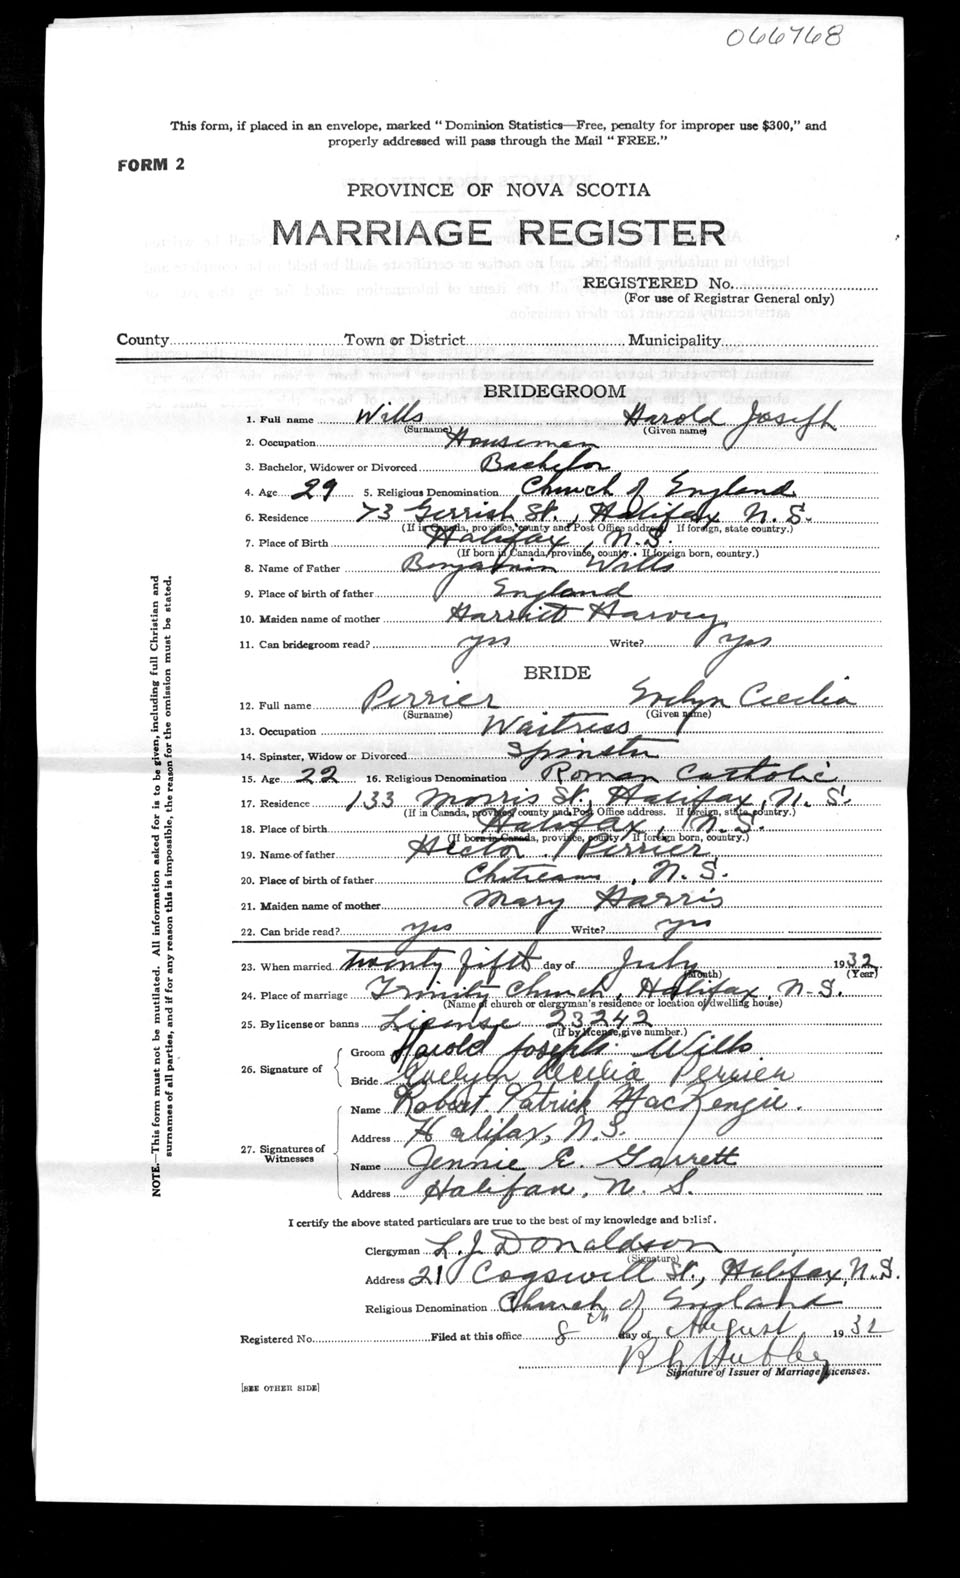 066768
This form, if placed in an envelope, marked "Dominion Statistics—Free, penalty for improper use $300," and
properly addressed will pass through the Mail "FREE."
FORM 2
PROVINCE OF NOVA SCOTIA
MARRIAGE REGISTER
REGISTERED No.
(For use of Registrar General only)
County Town or District Municipality
BRIDEGROOM
1. Full name Wills Harold Joseph
(Surname) (Given name)
2. Occupation Houseman
3. Bachelor, Widower or Divorced Bachelor
4. Age 29 5. Religious Denomination Church of England
6. Residence 73 Gerrish St., Halifax N.S.
(If in Canada, province, county and Post Office address. If foreign, state country.)
7. Place of Birth Halifax, N.S.
(If born in Canada, province, county. If foreign born, country.)
8. Name of Father Benjamin Wills
9. Place of birth of father England
10. Maiden name of mother Harriet Harvey
11. Can bridegroom read? yes Write? yes
BRIDE
12. Full name Perrier Evelyn Cecilia
(Surname) (Given name)
13. Occupation Waitress
14. Spinster, Widow or Divorced Spinster
15. Age 22 16. Religious Denomination Roman Catholic
17. Residence 133 Morris St., Halifax, N.S.
(If in Canada, province, county and Post Office address. If foreign, state country.)
18. Place of birth Halifax, N.S.
(If born in Canada, province, county. If foreign born, country.)
19. Name of father Hector Perrier
20. Place of birth of father , N.S.
21. Maiden name of mother Mary Harris
22. Can bride read? yes Write? yes
23. When married twenty fifth day of July 1932
(Month) (Year)
24. Place of marriage Trinity Church, Halifax, N.S.
(Name of church or clergyman's residence or location of dwelling house)
25. By license or banns License 23242
(If by license, give number.)
26. Signature of
Groom Harold Joseph Wills
Bride Evelyn Cecilia Perrier
27. Signatures of Witnesses
Name Robert Patrick MacKenzie.
Address Halifax, N.S.
Name Jennie E. Garrett
Address Halifax, N.S.
I certify the above stated particulars are true to the best of my knowledge and belief.
Clergyman L. J. Donaldson
(Signature)
Address 21 Cogswell St., Halifax, N.S.
Religious Denomination Church of England
Registered No. Filed at this office 8th day of August 1932
Signature of Issuer of Marriage Licenses.
[SEE OTHER SIDE]
NOTE.—This form must not be mutilated. All information asked for is to be given, including full Christian and
surnames of all parties, and if for any reason this is impossible, the reason for the omission must be stated.